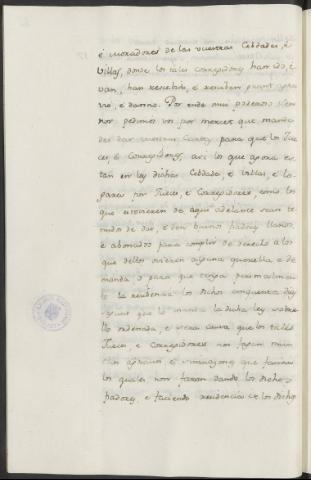 é moradores de las vuestras Cibdades, é
Villas, donde los tales Corregidores han ido, é
van, han recebido, é reciben grant agra
vio, é damno. Por ende muy poderoso Sen
nor pedimos vos por merced que manda
des dar vuestras Cartas para que los Jue
ces, é Corregidores, asi los que agora es
tan en las dichas Cibdades, é Villas, é lo
gares por Jueces, é Corregidores, como los
que estovieren de aqui adelante sean te
nidos de dar, é den buenos fiadores llanos
é abonados para complir de derecho á los
que dellos ovieren alguna querella, é de
manda, é para que tengan personalmen
te la residencia los dichos cinquenta dias
segunt que lo manda la dicha ley sobre
ello ordenada, é sera causa que los tales
Jueces, é Corregidores non fagan mu
chos agravios é sinrazones que facian
los quales non faran dando los dichos
fiadores, é faciendo residencia los dichos